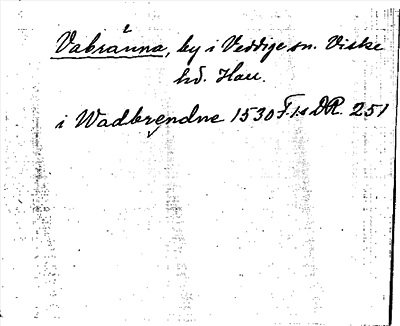 Vabränna, by i Veddige sn. Viske
hd. Hall.
i Wadbrendne 1530 F.1.s DR. 251